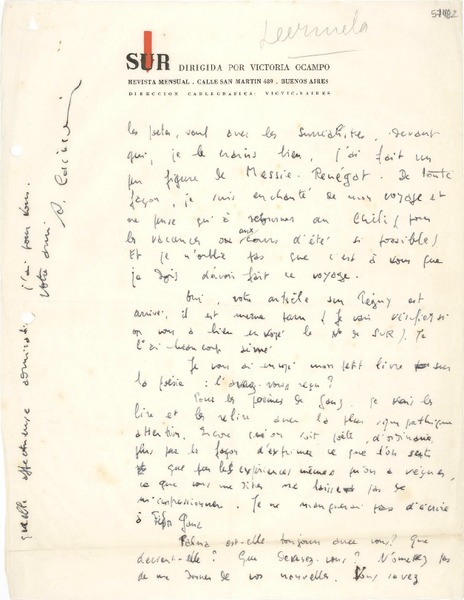 57982
SUR DIRIGIDA POR VICTORIA OCAMPO
REVISTA MENSUAL . CALLE SAN MARTIN 689 . BUENOS AIRES
DIRECCION CABLEGRAFICA: VICVIC-BAIRES
les poètes, sauf avec les surréalistes, devant
qui, je le crains bien, j'ai fait un
peu figure de Messie-Renégat. De toute
façon, je suis enchanté de mon voyage et
ne pense qu'à retourner au Chili (pour
les vacances ou aux cours d'été si possible)
Et je n'oublie pas que c'est à vous que
je dois d'avoir fait ce voyage.
Oui, votre article sur Péguy est
arrivé, il est même paru (Je vais vérifier si
on vous a bien envoyé le Nº de SUR). Je
l'ai beaucoup aimé
Je vous ai envoyé mon petit livre sur
la poésie : l'avez-vous reçu ?
Pour les poèmes de je vais les
lire et les relire avec la plus sympathique
attention. Encore qu'on soit poète, d'ordinaire,
plus par la façon d'exprimer ce que l'on sent
que par les expériences mêmes qu'on a vécues,
ce que vous me dites ne laisse pas de
m'impressionner. Je ne manquerai pas d'écrire
à
Palma est-elle toujours avec vous? Que
devient-elle ? Que devenez-vous ? N'omettez pas
de me donner de vos nouvelles. Vous savez
quelle affectueuse admiration j'ai pour vous.
Votre ami